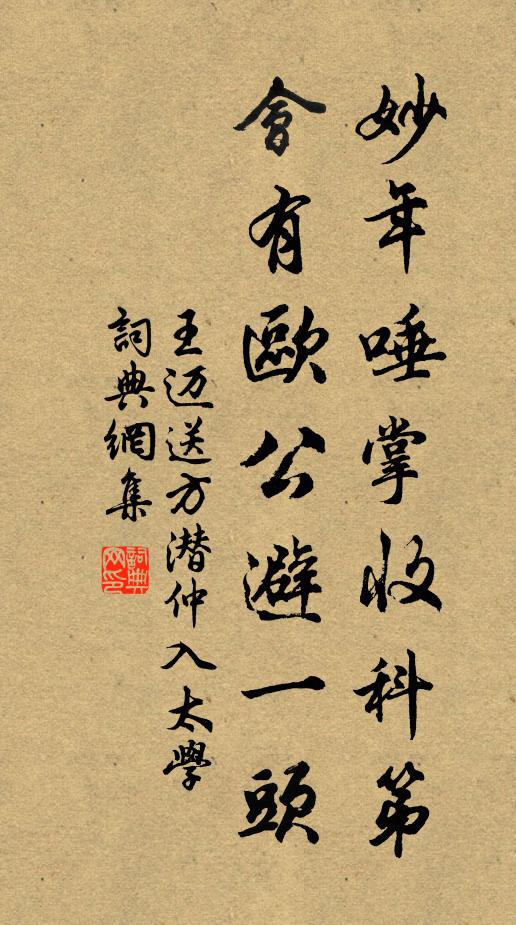 妙年唾掌收科第
會有歐公避一頭
王迈送方潜仲入太學
詞典網集
詞典网印